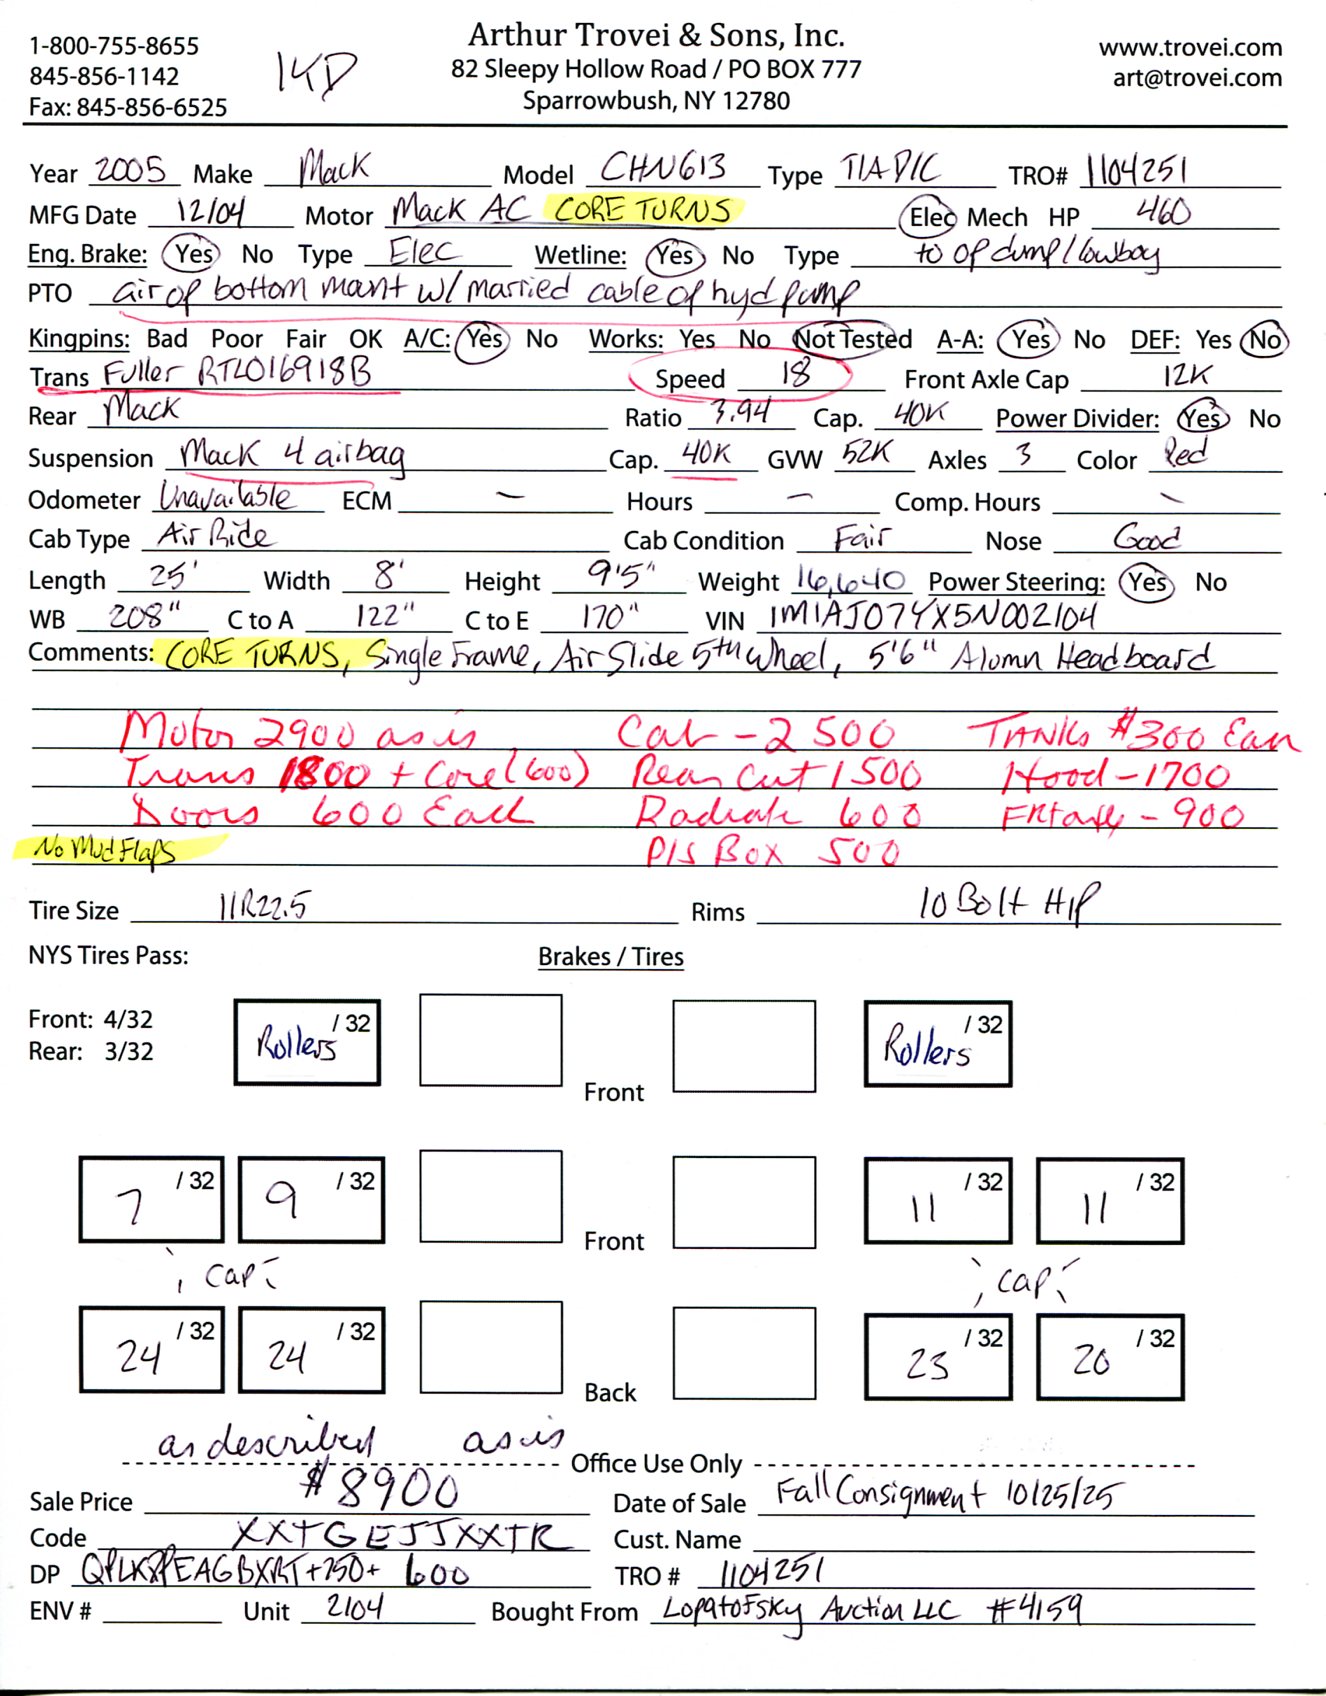 1-800-755-8655
845-856-1142
Fax: 845-856-6525
Arthur Trovei & Sons, Inc.
82 Sleepy Hollow Road / PO BOX 777
Sparrowbush, NY 12780
www.trovei.com
art@trovei.com
Year 2005 Make Mack Model CHN613 Type TIA DIC TRO# 1104251
MFG Date 12/04 Motor Mack AC CORE TURNS Elec Mech HP 460
Eng. Brake: Yes No Type Elec Wetline: Yes No Type to op dump/lowboy
PTO air op bottom mount w/ married cable op hyd pump
Kingpins: Bad Poor Fair OK A/C: Yes No Works: Yes No Not Tested A-A: Yes No DEF: Yes No
Trans Fuller RTLO16918B Speed 18 Front Axle Cap 12K
Rear Mack Ratio 3.94 Cap. 40K Power Divider: Yes No
Suspension Mack 4 airbag Cap. 40K GVW 52K Axles 3 Color Red
Odometer Unavailable ECM – Hours – Comp. Hours –
Cab Type Air Ride Cab Condition Fair Nose Good
Length 25' Width 8' Height 9'5" Weight 16,640 Power Steering: Yes No
WB 208" C to A 122" C to E 170" VIN 1M1AJ07YX5N002104
Comments: CORE TURNS, Single Frame, Air Slide 5th Wheel, 5'6" Alumn Headboard
Motor 2900 as is Cab - 2500 TANKS $300 Each
Trans 1800 + Core (600) Rear Cut 1500 Hood - 1700
Doors 600 Each Radiate 600 FRT axle - 900
No Mud Flaps P/S Box 500
Tire Size 11R22.5 Rims 10 Bolt H/P
NYS Tires Pass: Brakes / Tires
Front: 4/32
Rear: 3/32
Rollers /32 Front Rollers /32
7 /32 9 /32 Front 11 /32 11 /32
cap cap
24 /32 24 /32 Back 23 /32 20 /32
as described as is
Office Use Only
Sale Price $8900 Date of Sale Fall Consignment 10/25/25
Code XXTGEJJXXTR Cust. Name
DP +750+ 600 TRO # 1104251
ENV # Unit 2104 Bought From Lopatofsky Auction LLC #4159